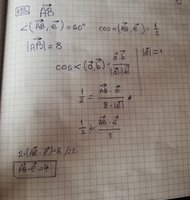 AB⃗
∢(AB⃗, e⃗) = 60°  cos∢(AB⃗, e⃗) = 1/2
|AB⃗| = 8  |e⃗| = 1
cos∢(a⃗, b⃗) = a⃗·b⃗ / |a⃗|·|b⃗|
1/2 = AB⃗·e⃗ / 8·|e⃗|
1/2 = AB⃗·e⃗ / 8
2·(AB⃗·e⃗) = 8 /:2
AB⃗·e⃗ = 4